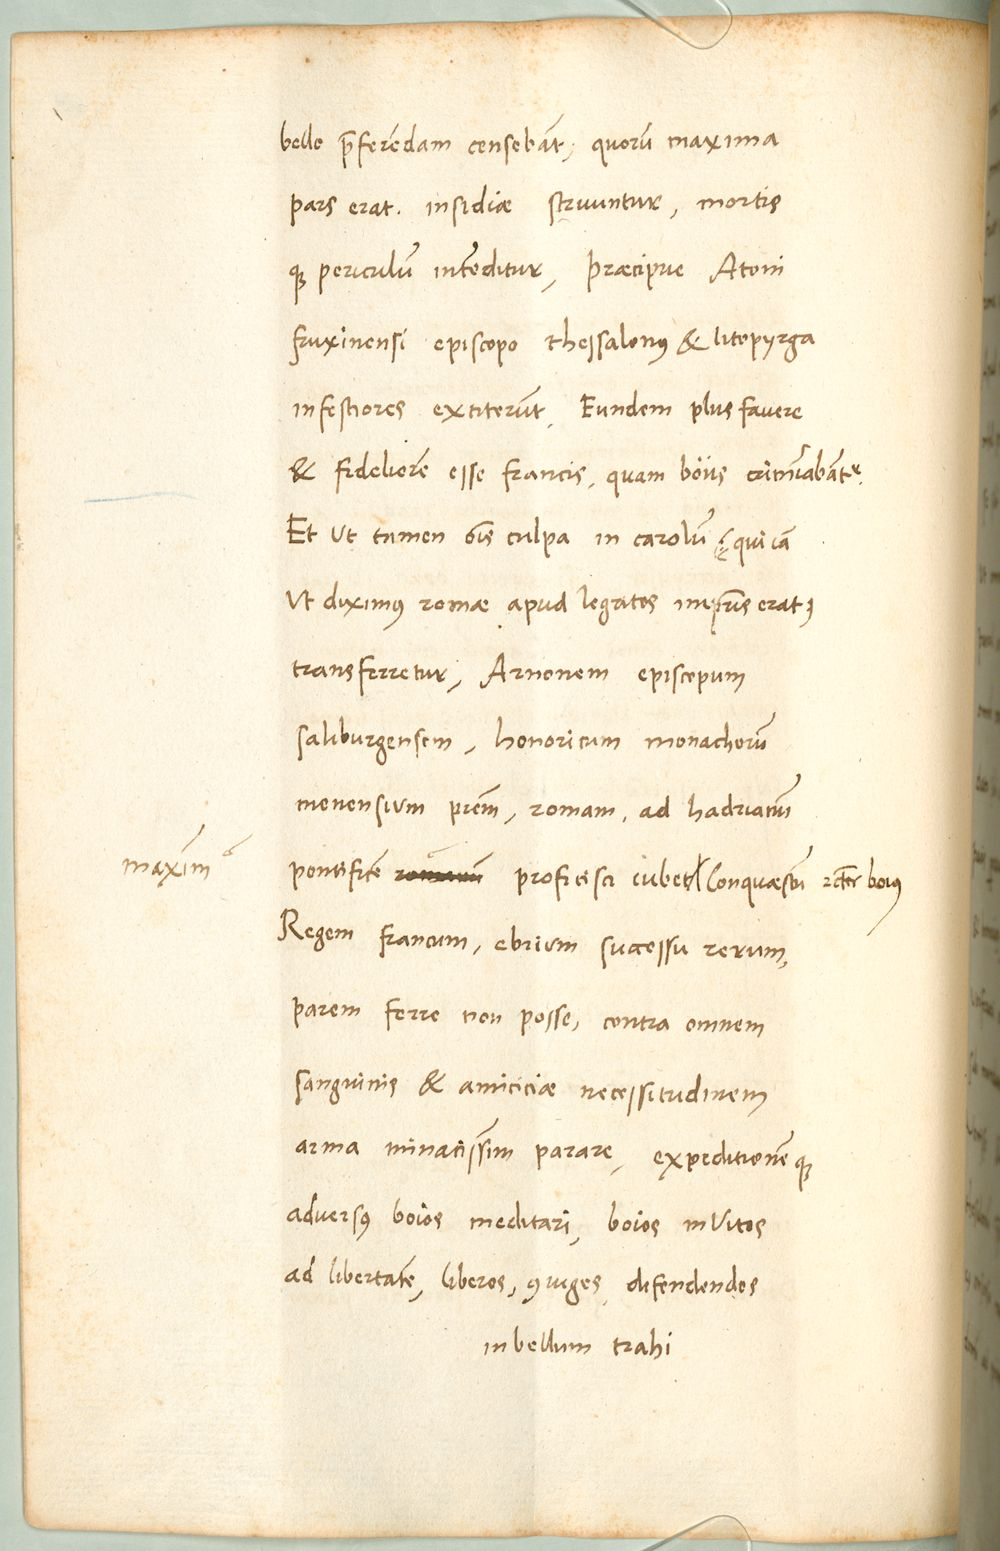 bello p̄ferēdam censebāt, quorū maxima
pars erat. insidiæ struuntur, mortis
q3 periculū intēditur, Præcipue Atoni
fruxinensi episcopo thessalonus & litopyrga
infestiores extiterūt, Eundem plus favere
& fideliorē esse francis, quam boiis crimīabāt.
Et ut tamen oīs culpa in carolū, qui iā
ut diximus romæ apud legatos erat,
transferretur, Arnonem episcopum
saliburgensem, honoricum monachorū
menensium prēm, romam, ad hadrianū
maxīm pontificē romanū proficisci iubet Conquæstū boius
Regem francum, ebrium successu rerum,
parem ferre non posse, contra omnem
sanguinis & amiciciæ necessitudinem
arma minacissīm parare, expeditionē q3
adversus boios meditari, boios invitos
ad libertatē, liberos, 9iuges, difendendos
in bellum trahi